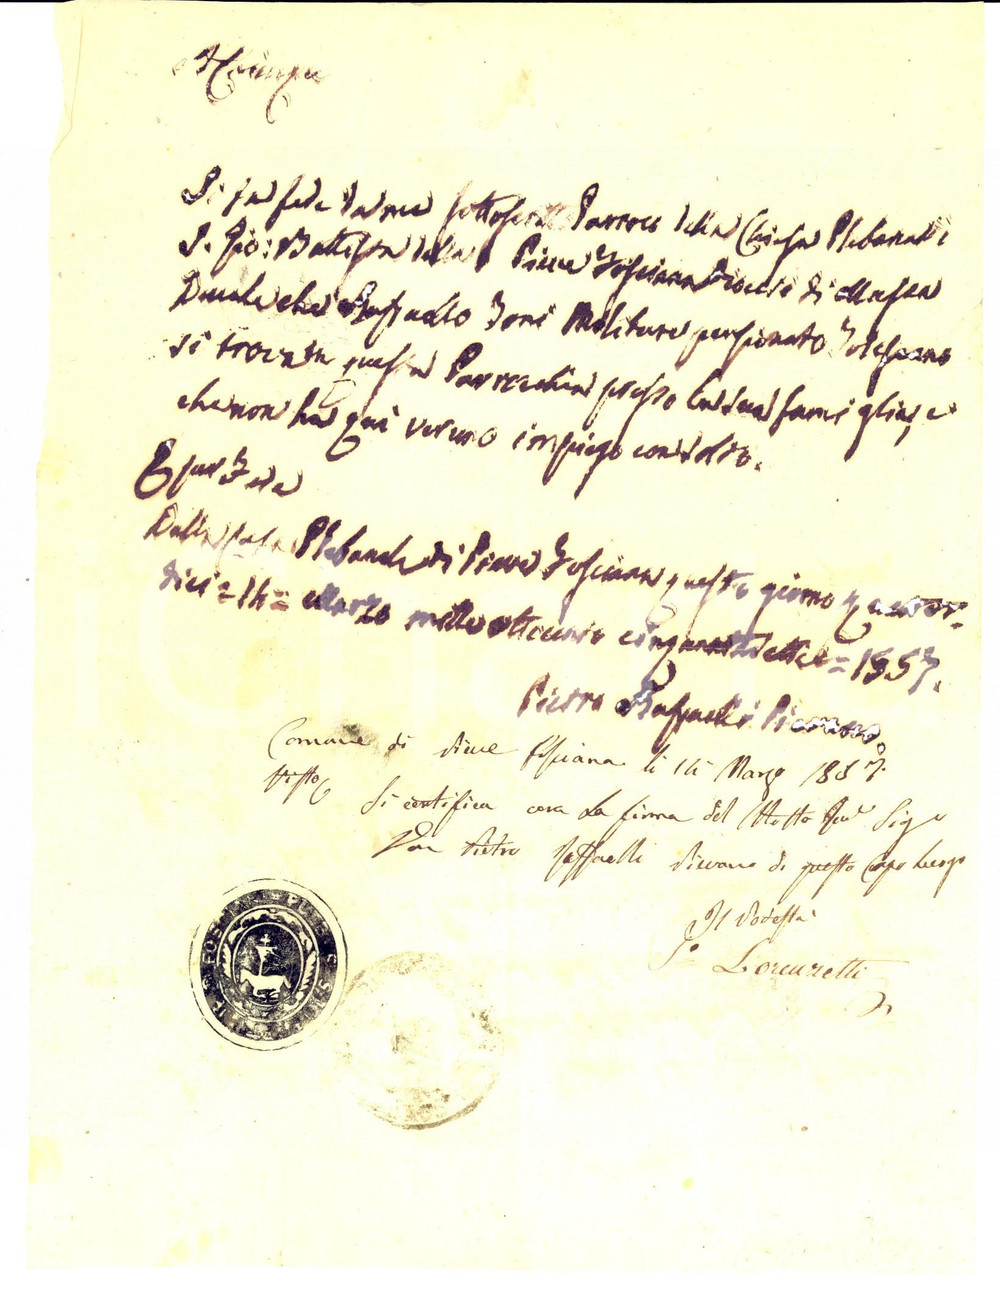 Si fa fede da me sottoscritto Parroco della Chiesa Plebana di
S. Gio: Battista della Pieve Fosciana Diocesi di Massa
Ducale che Raffaello Toni Militare pensionato Toscano
si trova in questa Parrocchia presso la sua famiglia, e
che non ha quì veruno impiego con soldo.
E per Fede
Dalla Casa Plebanale di Pieve Fosciana questo giorno quattor-
dici = 14 = Marzo mille ottocento cinquantasette = 1857.
Pietro Raffaelli Pievano.
Comune di Pieve Fosciana li 14 Marzo 1857.
Visto Si certifica vera la firma del Molto Sig.
Don Pietro Raffaelli Pievano di questo Capo Luogo
Il Podestà
Lorenzetti